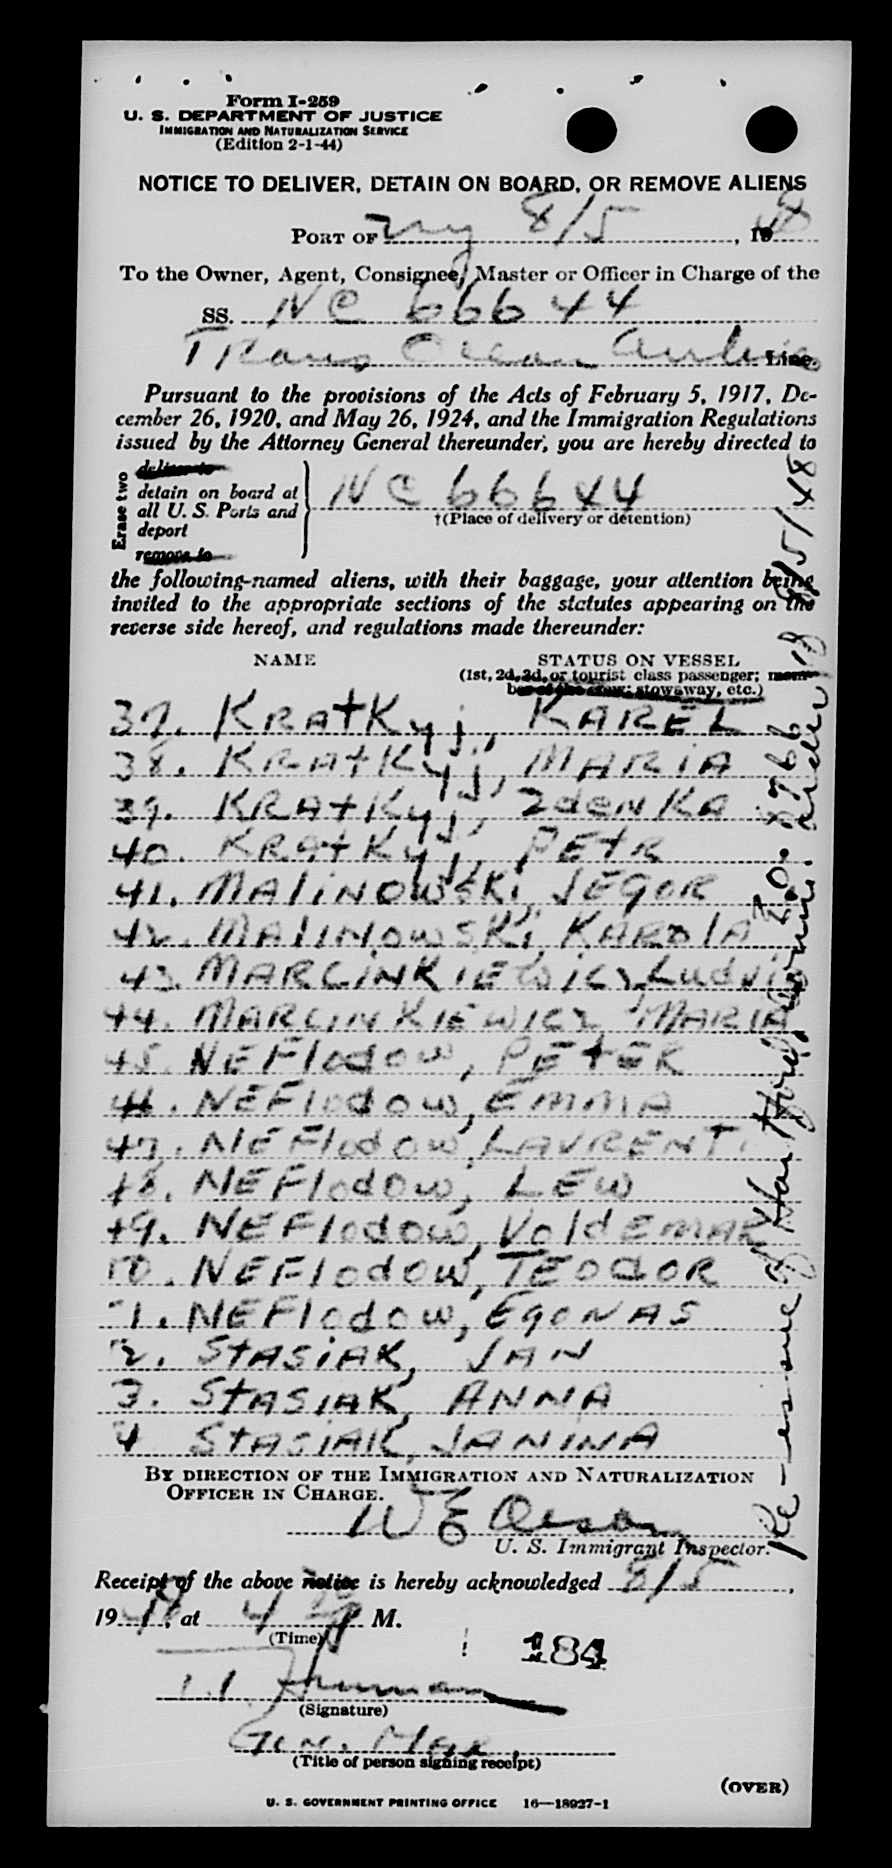 Form I-259
U. S. DEPARTMENT OF JUSTICE
IMMIGRATION AND NATURALIZATION SERVICE
(Edition 2-1-44)
NOTICE TO DELIVER, DETAIN ON BOARD, OR REMOVE ALIENS
PORT OF NY 8/5, 1948
To the Owner, Agent, Consignee, Master or Officer in Charge of the
SS. NC 66644
Trans Ocean Airlines Line.
Pursuant to the provisions of the Acts of February 5, 1917, De-
cember 26, 1920, and May 26, 1924, and the Immigration Regulations
issued by the Attorney General thereunder, you are hereby directed to
Erase two
deliver to
detain on board at
all U. S. Ports and
deport
remove to
NC 66644
†(Place of delivery or detention)
the following-named aliens, with their baggage, your attention being
invited to the appropriate sections of the statutes appearing on the
reverse side hereof, and regulations made thereunder:
NAME STATUS ON VESSEL
(1st, 2d, 3d, or tourist class passenger; mem-
ber of the crew; stowaway, etc.)
37. KRATKYj, KAREL
38. KRATKYj, MARIA
39. KRATKYj, ZdENKA
40. KRATKYj, PETR
41. MALINOWSKi, JEGOR
42. MALINOWSKi, KAROLA
43. MARCINKIEWICZ, Ludvi
44. MARCINKIEWICZ, MARIA
45. NEFlodow, PETER
46. NEFlodow, EMMA
47. NEFlodow, LAVRENTI
48. NEFlodow, LEW
49. NEFlodow, VoldEMAR
50. NEFlodow, TEODOR
1. NEFlodow, EGONAS
2. STASIAK, JAN
3. STASIAK, ANNA
4 STASIAK, JANINA
Re-issue of Hartford, Conn. 8/5/48
BY DIRECTION OF THE IMMIGRATION AND NATURALIZATION
OFFICER IN CHARGE.
W E Olson
U. S. Immigrant Inspector.
Receipt of the above notice is hereby acknowledged 8/5,
1948, at 4 P M.
(Time)
184
(Signature)
Gen. Mgr.
(Title of person signing receipt)
(OVER)
U. S. GOVERNMENT PRINTING OFFICE 16—18927-1